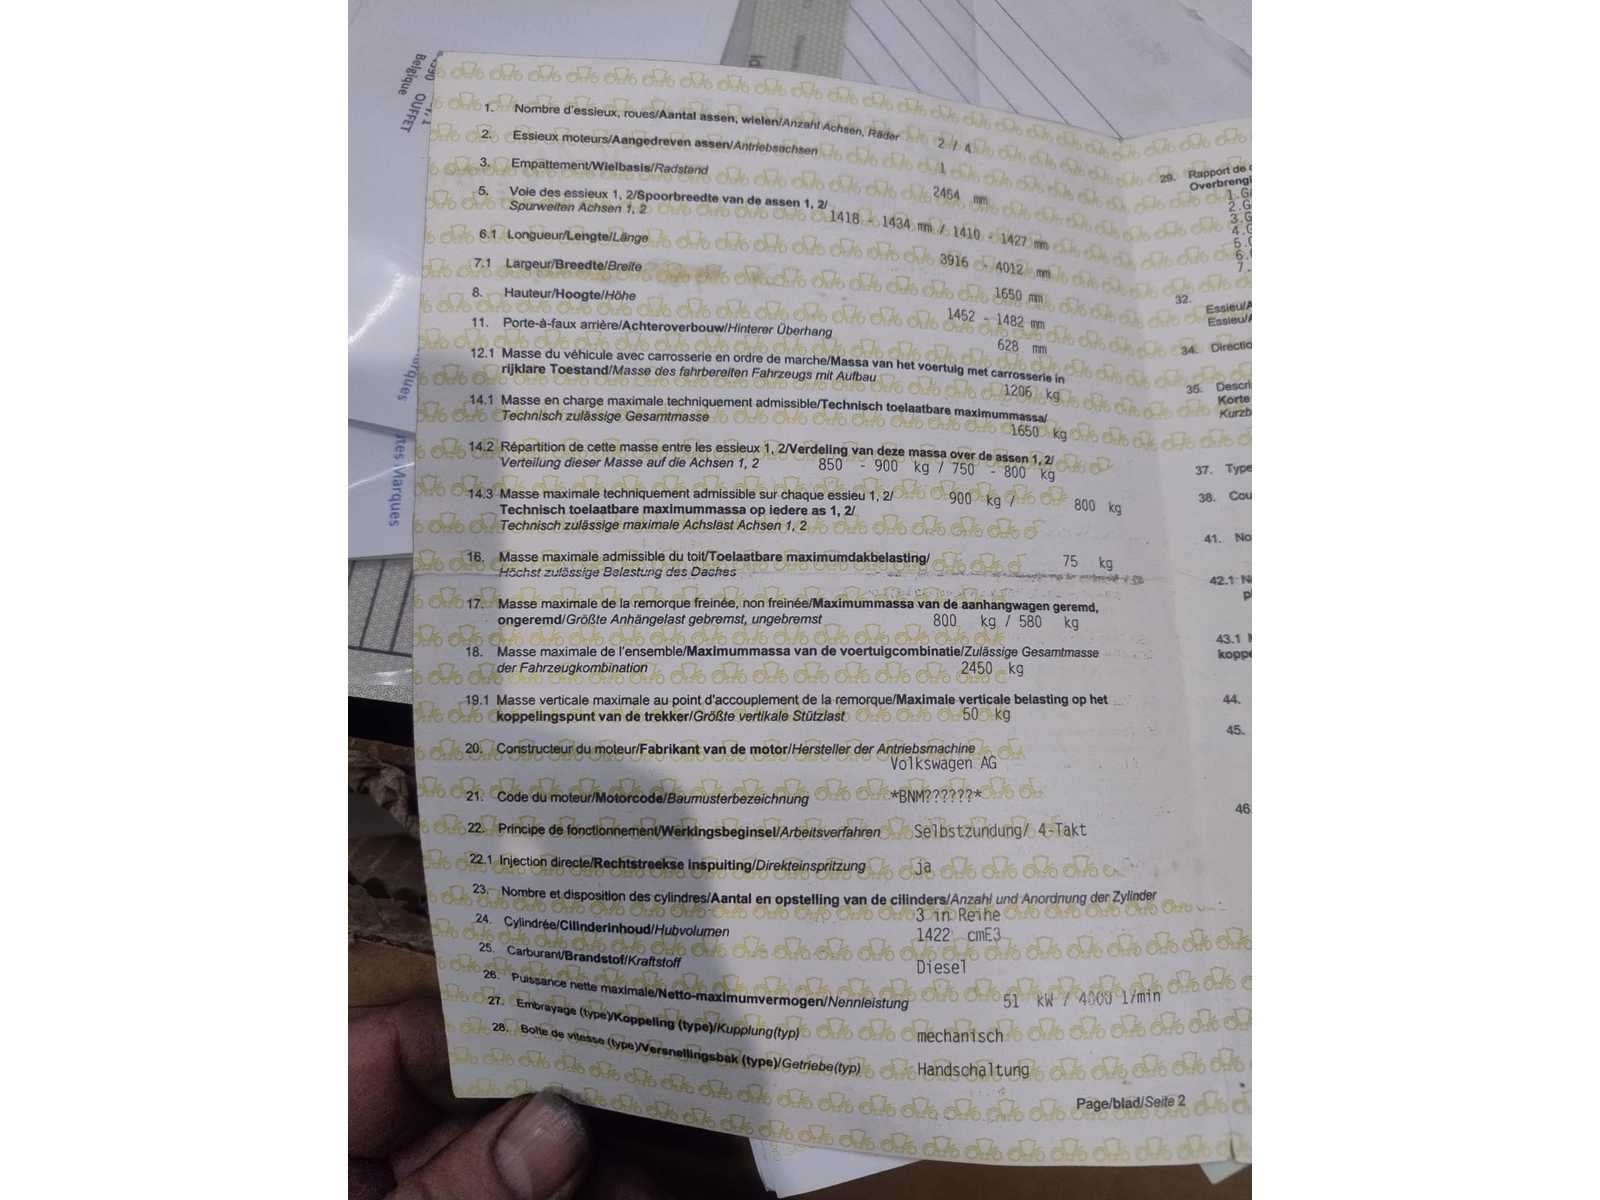 Belgique
OUFFET
1. Nombre d'essieux, roues/Aantal assen, wielen/Anzahl Achsen, Räder 2 / 4
2. Essieux moteurs/Aangedreven assen/Antriebsachsen 1
3. Empattement/Wielbasis/Radstand 2454 mm
5. Voie des essieux 1, 2/Spoorbreedte van de assen 1, 2/
Spurweiten Achsen 1, 2 1418 - 1434 mm / 1410 - 1427 mm
6.1 Longueur/Lengte/Länge 3916 - 4012 mm
7.1 Largeur/Breedte/Breite 1650 mm
8. Hauteur/Hoogte/Höhe 1452 - 1482 mm
11. Porte-à-faux arrière/Achteroverbouw/Hinterer Überhang 628 mm
12.1 Masse du véhicule avec carrosserie en ordre de marche/Massa van het voertuig met carrosserie in
rijklare Toestand/Masse des fahrbereiten Fahrzeugs mit Aufbau 1206 kg
14.1 Masse en charge maximale techniquement admissible/Technisch toelaatbare maximummassa/
Technisch zulässige Gesamtmasse 1650 kg
14.2 Répartition de cette masse entre les essieux 1, 2/Verdeling van deze massa over de assen 1, 2/
Verteilung dieser Masse auf die Achsen 1, 2 850 - 900 kg / 750 - 800 kg
14.3 Masse maximale techniquement admissible sur chaque essieu 1, 2/ 900 kg / 800 kg
Technisch toelaatbare maximummassa op iedere as 1, 2/
Technisch zulässige maximale Achslast Achsen 1, 2
16. Masse maximale admissible du toit/Toelaatbare maximumdakbelasting/ 75 kg
Höchst zulässige Belastung des Daches
17. Masse maximale de la remorque freinée, non freinée/Maximummassa van de aanhangwagen geremd,
ongeremd/Größte Anhängelast gebremst, ungebremst 800 kg / 580 kg
18. Masse maximale de l'ensemble/Maximummassa van de voertuigcombinatie/Zulässige Gesamtmasse
der Fahrzeugkombination 2450 kg
19.1 Masse verticale maximale au point d'accouplement de la remorque/Maximale verticale belasting op het
koppelingspunt van de trekker/Größte vertikale Stützlast 50 kg
20. Constructeur du moteur/Fabrikant van de motor/Hersteller der Antriebsmachine
Volkswagen AG
21. Code du moteur/Motorcode/Baumusterbezeichnung *BNM??????*
22. Principe de fonctionnement/Werkingsbeginsel/Arbeitsverfahren Selbstzundung/ 4-Takt
22.1 Injection directe/Rechtstreekse inspuiting/Direkteinspritzung ja
23. Nombre et disposition des cylindres/Aantal en opstelling van de cilinders/Anzahl und Anordnung der Zylinder
3 in Reihe
24. Cylindrée/Cilinderinhoud/Hubvolumen 1422 cmE3
25. Carburant/Brandstof/Kraftstoff Diesel
26. Puissance nette maximale/Netto-maximumvermogen/Nennleistung 51 kW / 4000 1/min
27. Embrayage (type)/Koppeling (type)/Kupplung(typ) mechanisch
28. Boîte de vitesse (type)/Versnellingsbak (type)/Getriebe(typ) Handschaltung
Page/blad/Seite 2
29. Rapport de
Overbreng
1.G
2.G
3.G
4.G
5.
6.
7.
32.
Essieu/A
Essieu/
34. Directio
35. Descri
Korte
Kurzb
37. Type
38. Cou
41. No
42.1 N
43.1
koppe
44.
45.
46
Marques